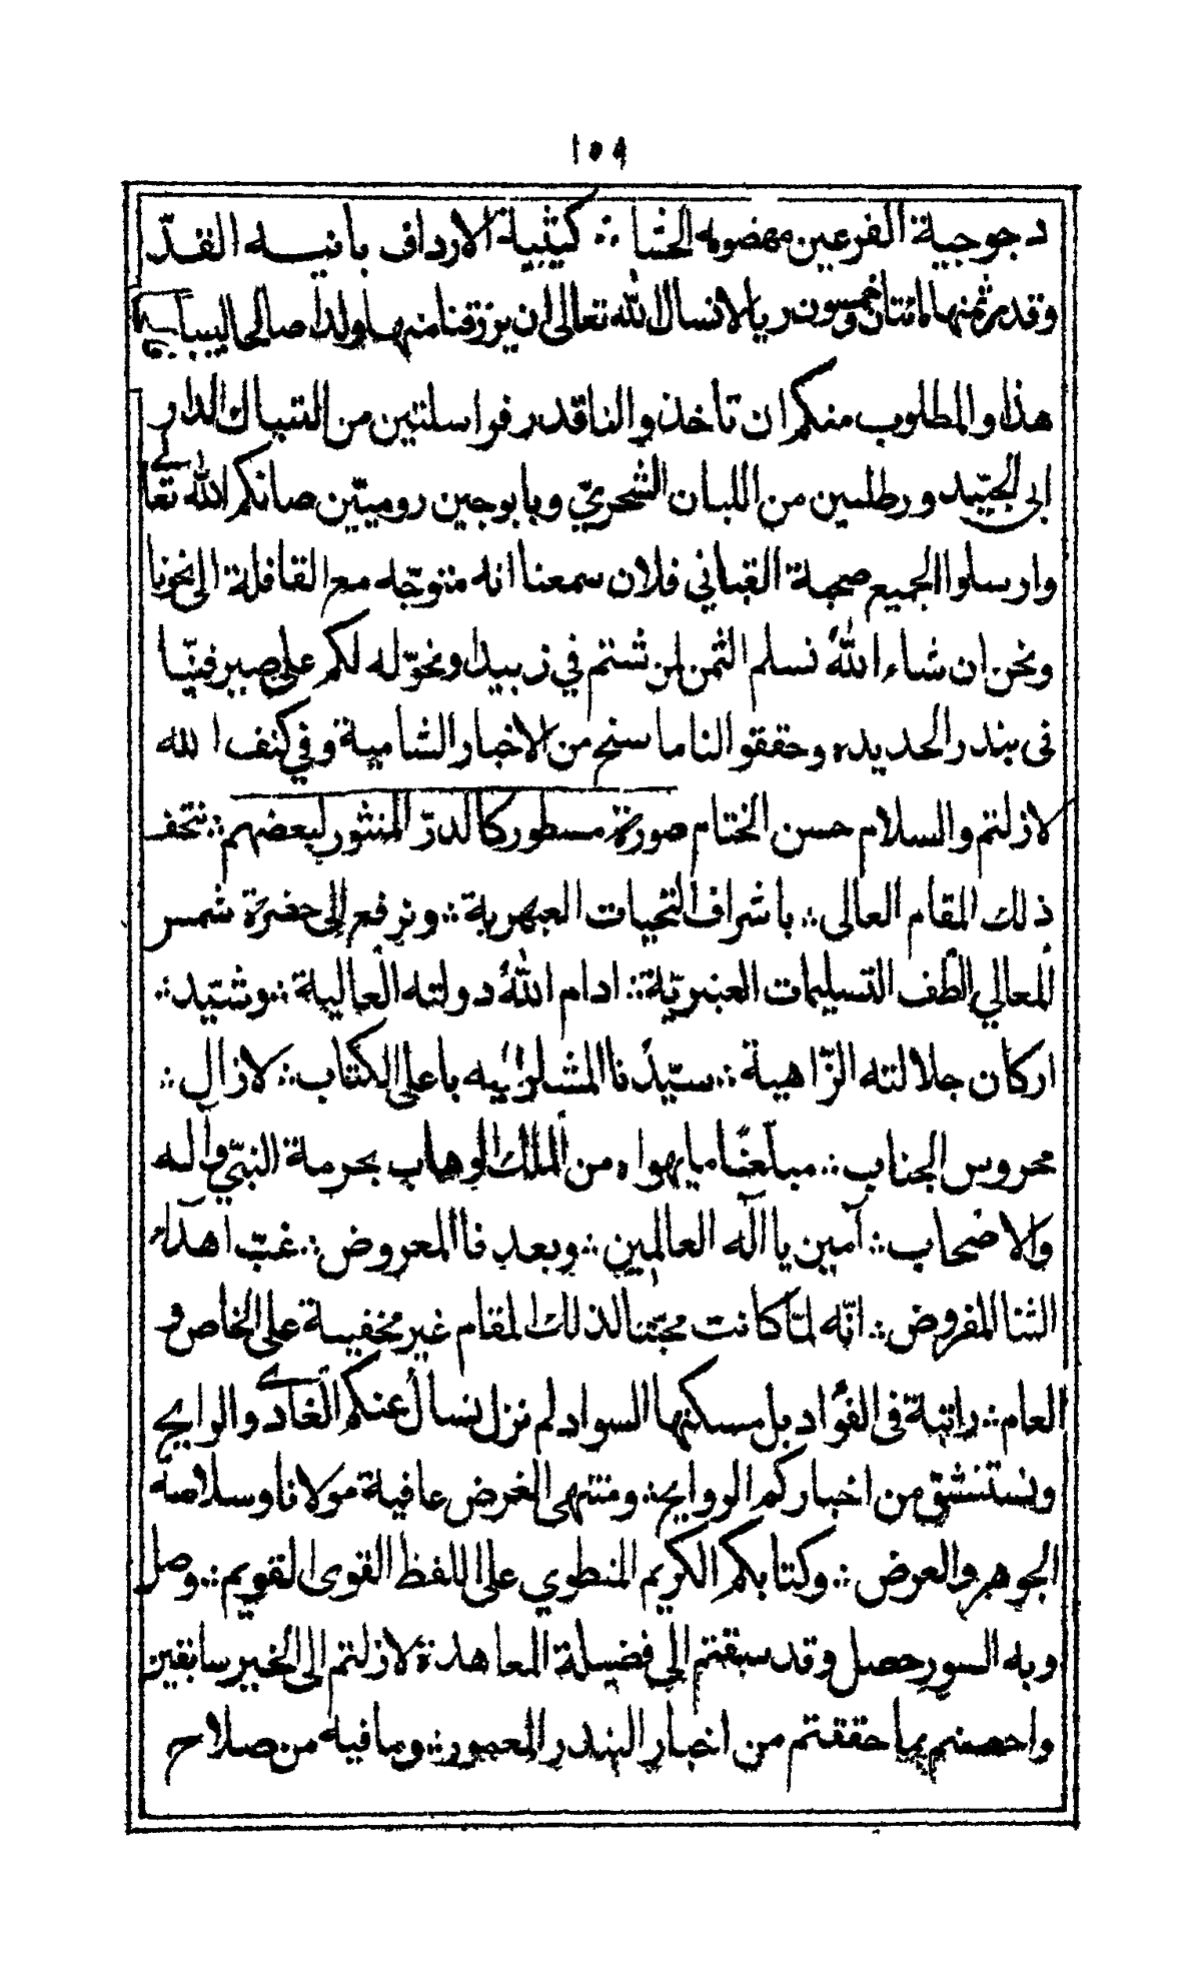 ١٥٩
دجوجية الفرعين مهضومه الحشا ∴ كثيبية الارداف بانيـه القدّ
وقدر ثمنها مائتان وخمسون ريالا نسال الله تعالى ان يرزقنا منها ولدا صالحا لبيبا
هذا والمطلوب منكم ان تاخذوا لنا قدر فراسلتين من التنباك الدار
ابى الجيّد ورطلين من اللبان الشحريّ وبابوجين روميّين صانكم الله تعالى
وارسلوا الجميع صحبة القبانى فلان سمعنا انه متوجّه مع القافلة الى نحونا
ونحن ان شاء اللهُ نسلم الثمن لمن شئتم في زبيد او نحوّله لكم على صيرفيّنا
فى بندر الحديده وحققوا لنا ما سنح من الاخبار الشامية وفي كنف الله
لازلتم والسلام حسن الختام صورة مسطور كالدرّ المنثور لبعضهم ∴ نتحف
ذلك المقام العالى ∴ باشراف التحيات العبهرية ∴ ونرفع إلى حضرة شمس
المعالي الطف التسليمات العنبريّة ∴ ادام اللهُ دولته العالية ∴ وشيّد ∴
اركان جلالته الزّاهية ∴ سيّدُنا المشار اليه باعلى الكتاب ∴ لازال ∴
محروس الجناب ∴ مبلّغًا ما يهواه من الملك الوهاب بحرمة النبيّ وآله
والاصحاب ∴ آمين يا آله العالمين ∴ وبعد فالمعروض ∴ غبّ اهدآء
الثنا المفروض ∴ انّه لمّا كانت محبّتنا لذلك المقام غير مخفية على الخاص و
العام ∴ راتبةً فى الفؤاد بل مسكنها السواد لم نزل نسأل عنكم الغادى والرايح
ونستنشق من اخباركم الروايح ∴ ومنتهى الغرض عافية مولانا وسلامة
الجوهر والعرض ∴ وكتابكم الكريم المنطوي على اللفظ القوى القويم ∴ وصل
وبه السرور حصل وقد سبقتم إلى فضيلة المعاهدة لازلتم الى الخير سابقين
واحسنتم بما حققتم من اخبار البندر المعمور ∴ وما فيه من صلاح